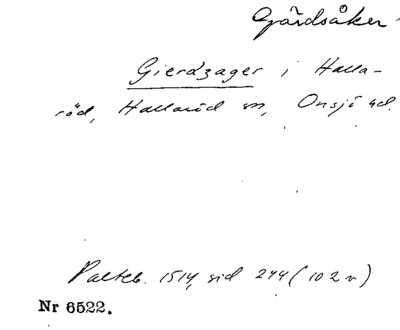 Gårdsåker
Gierdzager i Halla-
röd, Hallaröd sn, Onsjö hd.
Palteb. 1514, sid 244 (102 v)
Nr 6522.